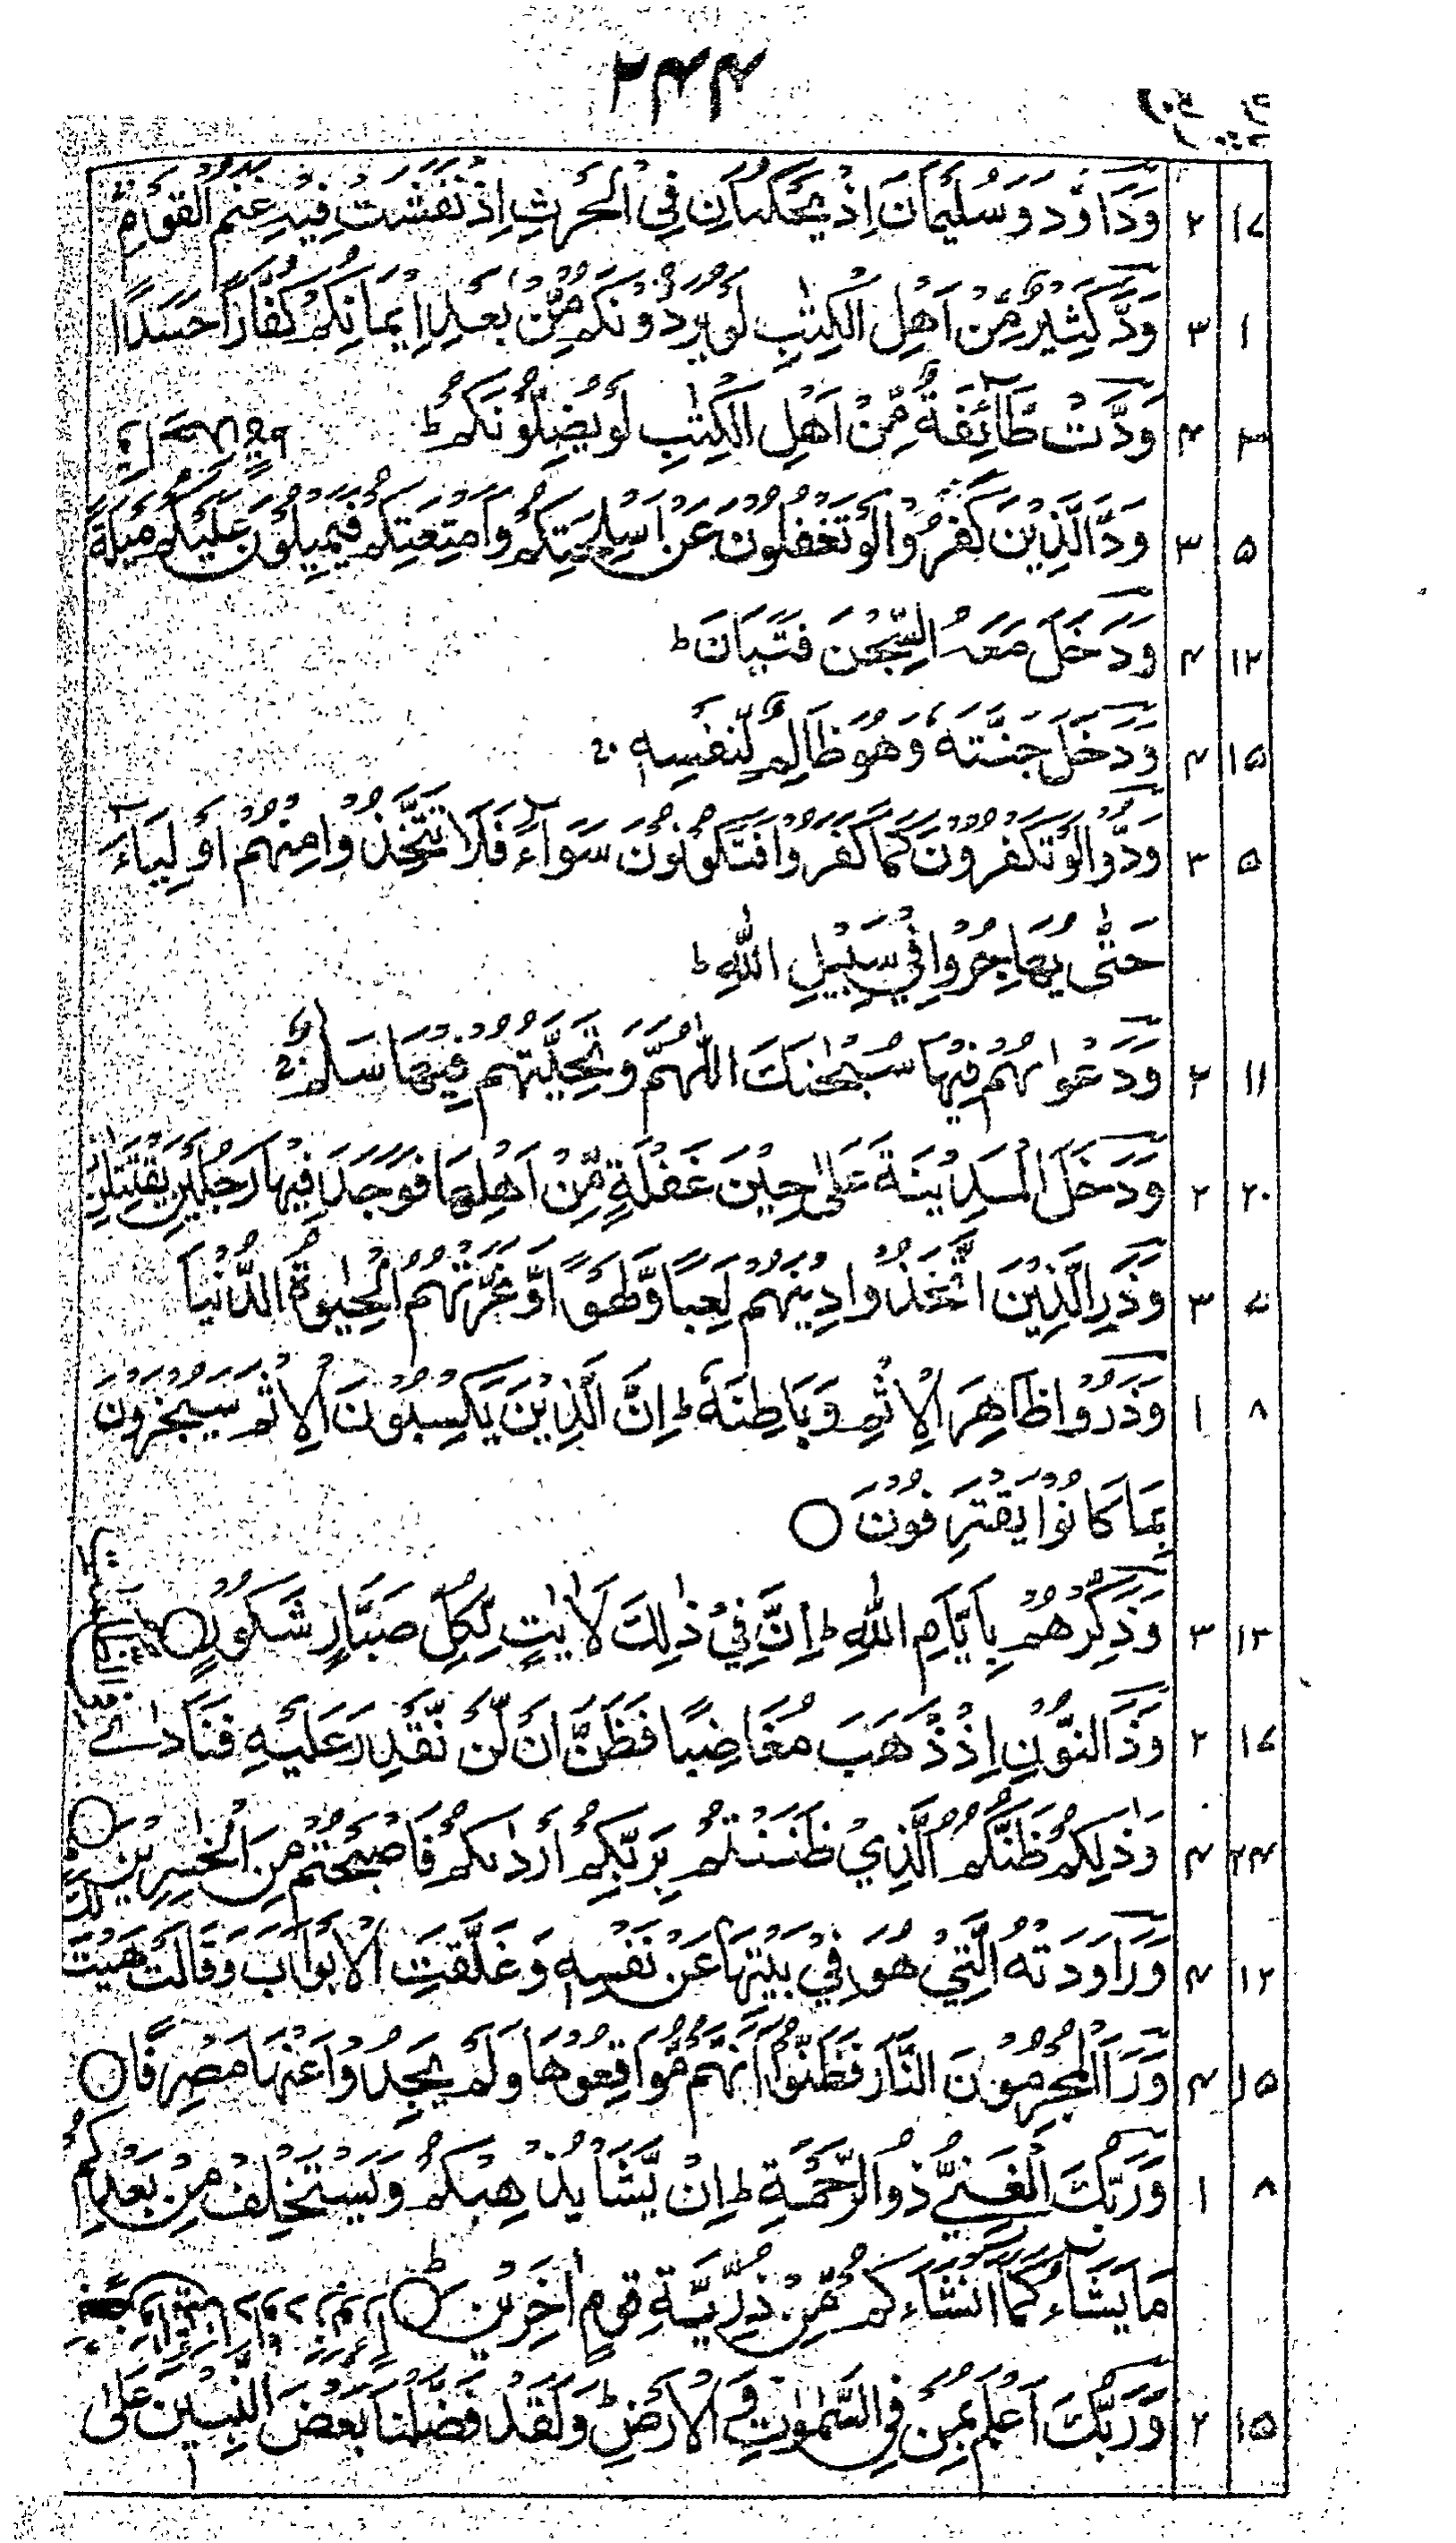 ۲۴۴
۱۷ ۲ وَدَاوٗدَ وَسُلَيْمَانَ اِذْ يَحْكُمَانِ فِي الْحَرْثِ اِذْ نَفَشَتْ فِيْهِ غَنَمُ الْقَوْمِ
۱ ۳ وَدَّ كَثِيْرٌ مِّنْ اَهْلِ الْكِتٰبِ لَوْ يَرُدُّوْنَكُمْ مِّنْ بَعْدِ اِيْمَانِكُمْ كُفَّارًا حَسَدًا
۳ ۴ وَدَّتْ طَّآئِفَةٌ مِّنْ اَهْلِ الْكِتٰبِ لَوْ يُضِلُّوْنَكُمْ ط
۵ ۳ وَدَّ الَّذِيْنَ كَفَرُوْا لَوْ تَغْفُلُوْنَ عَنْ اَسْلِحَتِكُمْ وَاَمْتِعَتِكُمْ فَيَمِيْلُوْنَ عَلَيْكُمْ مَيْلَةً
۱۲ ۴ وَدَخَلَ مَعَهُ السِّجْنَ فَتَيَانَ ط
۱۵ ۴ وَدَخَلَ جَنَّتَهٗ وَهُوَ ظَالِمٌ لِّنَفْسِهٖ ج
۵ ۳ وَدُّوْا لَوْ تَكْفُرُوْنَ كَمَا كَفَرُوْا فَتَكُوْنُوْنَ سَوَآءً فَلَا تَتَّخِذُوْا مِنْهُمْ اَوْلِيَآءَ
حَتّٰى يُهَاجِرُوْا فِيْ سَبِيْلِ اللّٰهِ ط
۱۱ ۲ وَدَعْوٰىهُمْ فِيْهَا سُبْحٰنَكَ اللّٰهُمَّ وَتَحِيَّتُهُمْ فِيْهَا سَلٰمٌ ج
۲۰ ۲ وَدَخَلَ الْمَدِيْنَةَ عَلٰى حِيْنِ غَفْلَةٍ مِّنْ اَهْلِهَا فَوَجَدَ فِيْهَا رَجُلَيْنِ يَقْتَتِلٰنِ
۷ ۳ وَذَرِ الَّذِيْنَ اتَّخَذُوْا دِيْنَهُمْ لَعِبًا وَّلَهْوًا وَّغَرَّتْهُمُ الْحَيٰوةُ الدُّنْيَا
۸ ۱ وَذَرُوْا ظَاهِرَ الْاِثْمِ وَبَاطِنَهٗ ط اِنَّ الَّذِيْنَ يَكْسِبُوْنَ الْاِثْمَ سَيُجْزَوْنَ
بِمَا كَانُوْا يَقْتَرِفُوْنَ ○
۱۳ ۳ وَذَكِّرْهُمْ بِاَيّٰامِ اللّٰهِ ط اِنَّ فِيْ ذٰلِكَ لَاٰيٰتٍ لِّكُلِّ صَبَّارٍ شَكُوْرٍ ○
۱۷ ۲ وَذَا النُّوْنِ اِذْ ذَّهَبَ مُغَاضِبًا فَظَنَّ اَنْ لَّنْ نَّقْدِرَ عَلَيْهِ فَنَادٰى
۲۴ ۴ وَذٰلِكُمْ ظَنُّكُمُ الَّذِيْ ظَنَنْتُمْ بِرَبِّكُمْ اَرْدٰىكُمْ فَاَصْبَحْتُمْ مِنَ الْخٰسِرِيْنَ ○
۱۲ ۴ وَرَاوَدَتْهُ الَّتِيْ هُوَ فِيْ بَيْتِهَا عَنْ نَفْسِهٖ وَغَلَّقَتِ الْاَبْوَابَ وَقَالَتْ هَيْتَ لَكَ
۱۵ ۴ وَرَاَ الْمُجْرِمُوْنَ النَّارَ فَظَنُّوْا اَنَّهُمْ مُّوَاقِعُوْهَا وَلَمْ يَجِدُوْا عَنْهَا مَصْرِفًا ○
۸ ۱ وَرَبُّكَ الْغَنِيُّ ذُو الرَّحْمَةِ ط اِنْ يَّشَاْ يُذْهِبْكُمْ وَيَسْتَخْلِفْ مِنْ بَعْدِكُمْ
مَا يَشَآءُ كَمَا اَنْشَاَكُمْ مِّنْ ذُرِّيَّةِ قَوْمٍ اٰخَرِيْنَ ط ○
۱۵ ۲ وَرَبُّكَ اَعْلَمُ بِمَنْ فِي السَّمٰوٰتِ وَ الْاَرْضِ ط وَلَقَدْ فَضَّلْنَا بَعْضَ النَّبِيّٖنَ عَلٰى